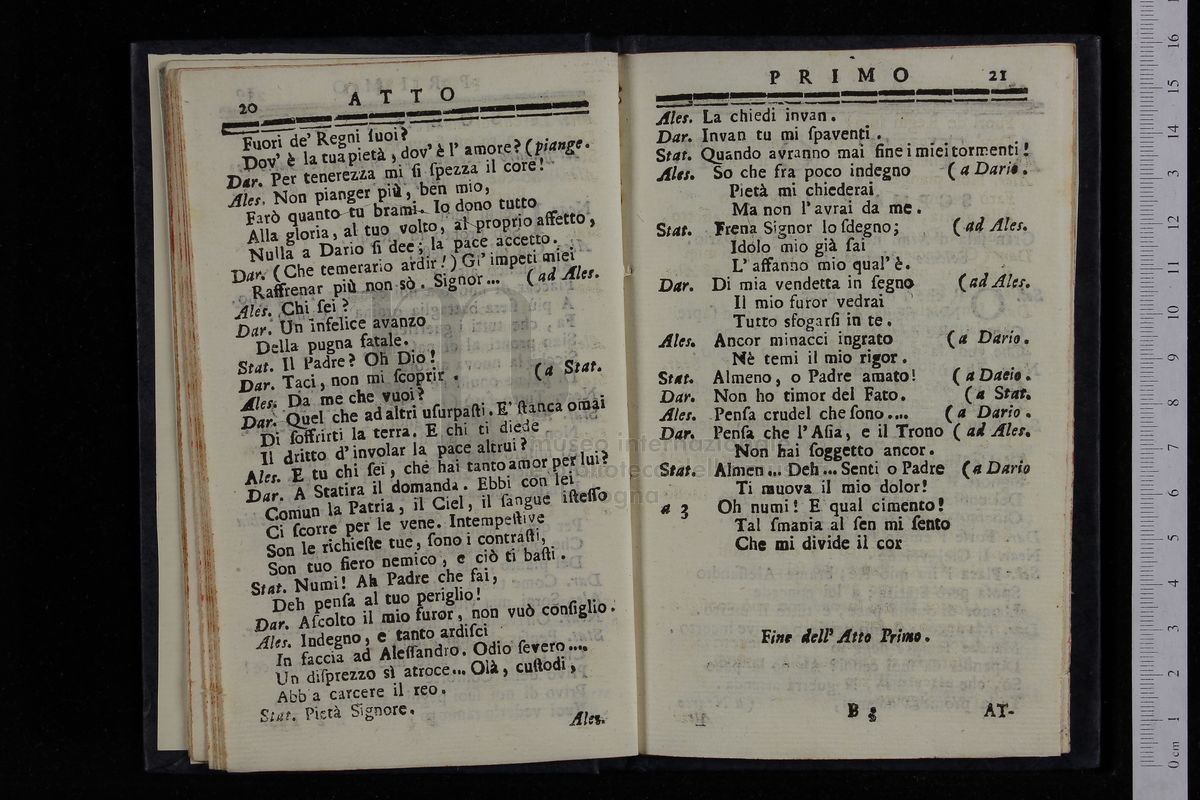 20 ATTO
Fuori de' Regni ſuoi?
Dov' è la tua pietà, dov' è l' amore? (piange.
Dar. Per tenerezza mi ſi ſpezza il core!
Ales. Non pianger più, ben mio,
Farò quanto tu brami. Io dono tutto
Alla gloria, al tuo volto, al proprio affetto,
Nulla a Dario ſi dee; la pace accetto.
Dar. (Che temerario ardir!) Gl' impeti miei
Raffrenar più non sò. Signor... (ad Ales.
Ales. Chi ſei?
Dar. Un infelice avanzo
Della pugna fatale.
Stat. Il Padre? Oh Dio!
Dar. Taci, non mi ſcoprir. (a Stat.
Ales. Da me che vuoi?
Dar. Quel che ad altri uſurpaſti. E' ſtanca omai
Di ſoffrirti la terra. E chi ti diede
Il dritto d'involar la pace altrui?
Ales. E tu chi ſei, che hai tanto amor per lui?
Dar. A Statira il domanda. Ebbi con lei
Comun la Patria, il Ciel, il ſangue iſteſſo
Ci ſcorre per le vene. Intempeſtive
Son le richieſte tue, ſono i contraſti,
Son tuo fiero nemico, e ciò ti baſti.
Stat. Numi! Ah Padre che fai,
Deh penſa al tuo periglio!
Dar. Aſcolto il mio furor, non vuò conſiglio.
Ales. Indegno, e tanto ardiſci
In faccia ad Aleſſandro. Odio ſevero....
Un diſprezzo sì atroce... Olà, cuſtodi,
Abb'a carcere il reo.
Stat. Pietà Signore.
Ales.
PRIMO 21
Ales. La chiedi invan.
Dar. Invan tu mi ſpaventi.
Stat. Quando avranno mai fine i miei tormenti!
Ales. So che fra poco indegno (a Dario.
Pietà mi chiederai
Ma non l'avrai da me.
Stat. Frena Signor lo ſdegno; (ad Ales.
Idolo mio già fai
L' affanno mio qual' è.
Dar. Di mia vendetta in ſegno (ad Ales.
Il mio furor vedrai
Tutto sfogarſi in te.
Ales. Ancor minacci ingrato (a Dario.
Nè temi il mio rigor.
Stat. Almeno, o Padre amato! (a Daeio.
Dar. Non ho timor del Fato. (a Stat.
Ales. Penſa crudel che ſono.... (a Dario.
Dar. Penſa che l'Aſia, e il Trono (ad Ales.
Non hai ſoggetto ancor.
Stat. Almen... Deh... Senti o Padre (a Dario
Ti muova il mio dolor!
a 3 Oh numi! E qual cimento!
Tal ſmania al ſen mi ſento
Che mi divide il cor
Fine dell' Atto Primo.
B 3 AT-
museo internazionale